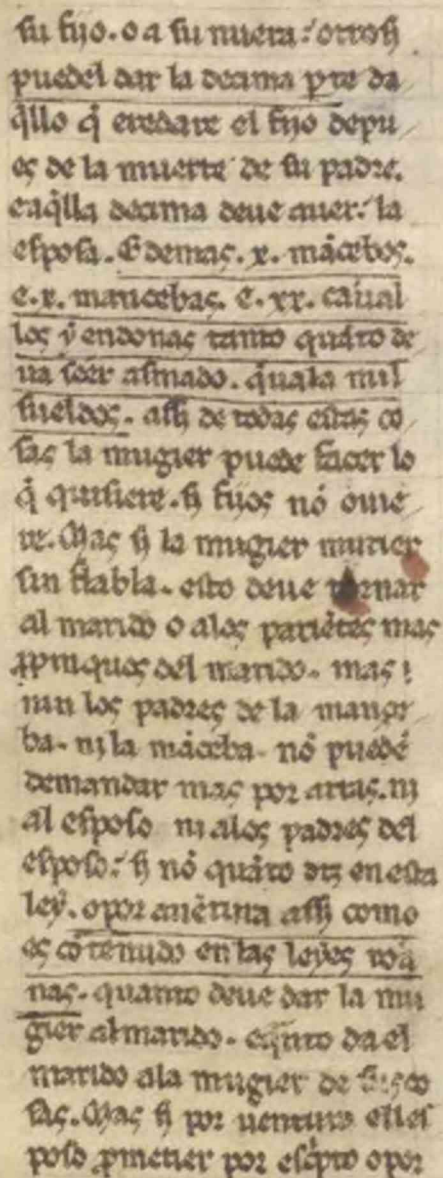 su fijo. o a su nuera. otrosi
puedel dar la decima pte da
qllo q̄ eredare el fijo depu
es de la muerte de su padre.
e aq̄lla decima deue auer. la
esposa. E demas. x. mācebos.
e. x. mancebas. e. xx. cauał
los ⁊ en donas tanto quāto de
ua seer asmado. q̄uala mil
sueldos. assi de todas estas co
sas la mugier puede facer lo
q̄ quisiere. si fijos nō ouie
re. Mas si la mugier murier
sin fiabla. esto deue tornar
al marido o alos pariētes mas
ꝓpinquos del marido. mas
nin los padres de la mance
ba. ni la māceba. nō puedē
demandar mas por arras. ni
al esposo ni alos padres del
esposo. si nō quāto diz en esta
ley. o por auētura assi como
es cōtenudo en las leyes roā
nas. quanto deue dar la mu
gier al marido. e q̄nto da el
marido ala mugier de sus co
sas. Mas si por uentura el es
poso ꝓmetier por escpto o por